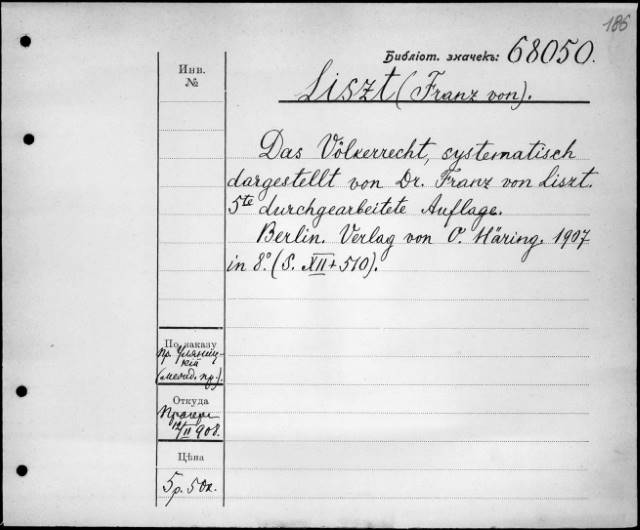 186
Библіот. значекъ: 68050.
Инв.
№
Liszt (Franz von).
Das Völkerrecht, systematisch
dargestellt von Dr. Franz von Liszt.
5te durchgearbeitete Auflage.
Berlin. Verlag von O. Häring. 1907
in 8º. (S. XII + 510).
По заказу
пр. Уляниц-
кій
(межд. пр.)
Откуда
12/II 908.
Цѣна
5 р. 50 к.